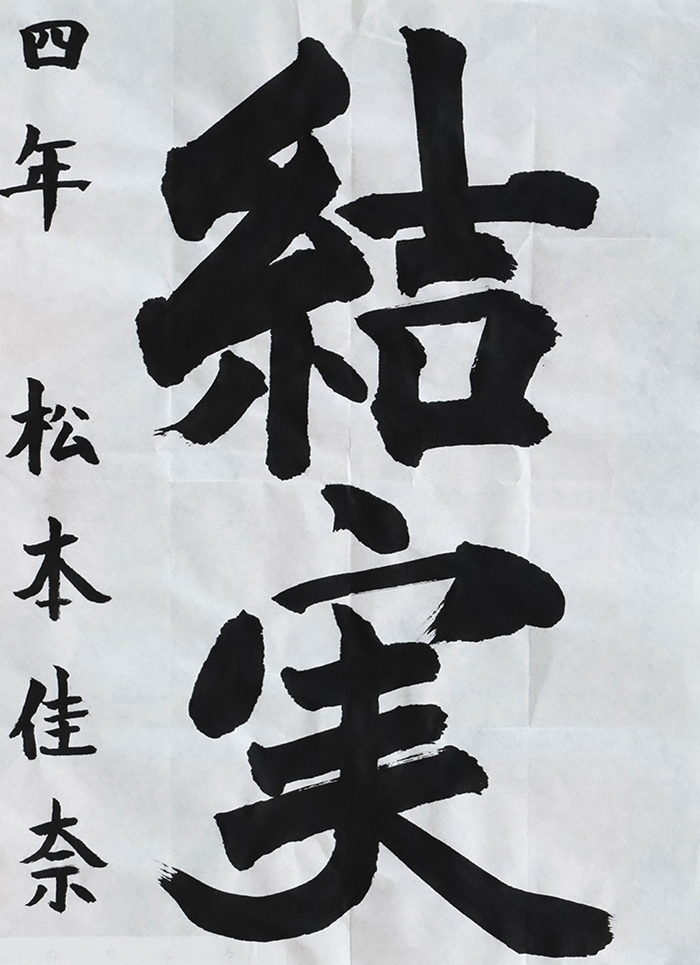 結実
四年 松本佳奈